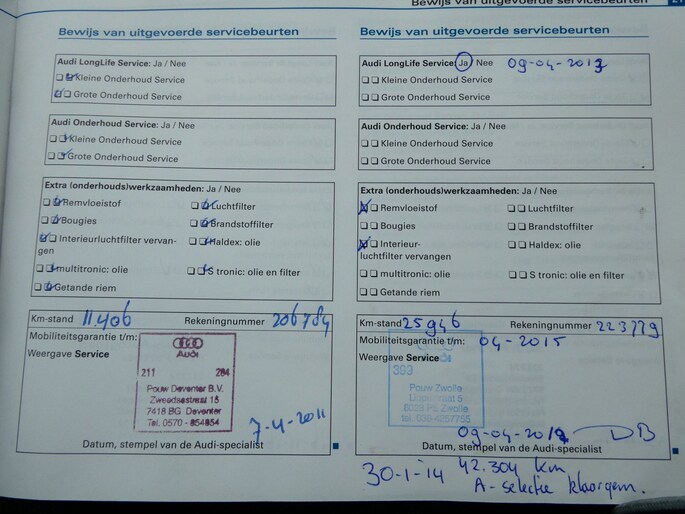 Bewijs van uitgevoerde servicebeurten
Bewijs van uitgevoerde servicebeurten
Audi LongLife Service: Ja / Nee
Kleine Onderhoud Service
Grote Onderhoud Service
Audi Onderhoud Service: Ja / Nee
Kleine Onderhoud Service
Grote Onderhoud Service
Extra (onderhouds)werkzaamheden: Ja / Nee
Remvloeistof Luchtfilter
Bougies Brandstoffilter
Interieurluchtfilter vervan- Haldex: olie
gen
multitronic: olie S tronic: olie en filter
Getande riem
Km-stand 11.406 Rekeningnummer 206784
Mobiliteitsgarantie t/m:
Weergave Service
Audi
211 284
Pouw Deventer B.V.
Zweedsestraat 15
7418 BG Deventer
Tel. 0570 - 854854
7-4-2011
Datum, stempel van de Audi-specialist
Bewijs van uitgevoerde servicebeurten
Audi LongLife Service: Ja / Nee 09-04-2013
Kleine Onderhoud Service
Grote Onderhoud Service
Audi Onderhoud Service: Ja / Nee
Kleine Onderhoud Service
Grote Onderhoud Service
Extra (onderhouds)werkzaamheden: Ja / Nee
Remvloeistof Luchtfilter
Bougies Brandstoffilter
Interieur- Haldex: olie
luchtfilter vervangen
multitronic: olie S tronic: olie en filter
Getande riem
Km-stand 25946 Rekeningnummer 223779
Mobiliteitsgarantie t/m: 04-2015
Weergave Service
393
Pouw Zwolle
5
Zwolle
tel. 038-4257755
09-04-201 DB
Datum, stempel van de Audi-specialist
30-1-14 42.304 km
A-selectie klaargem.